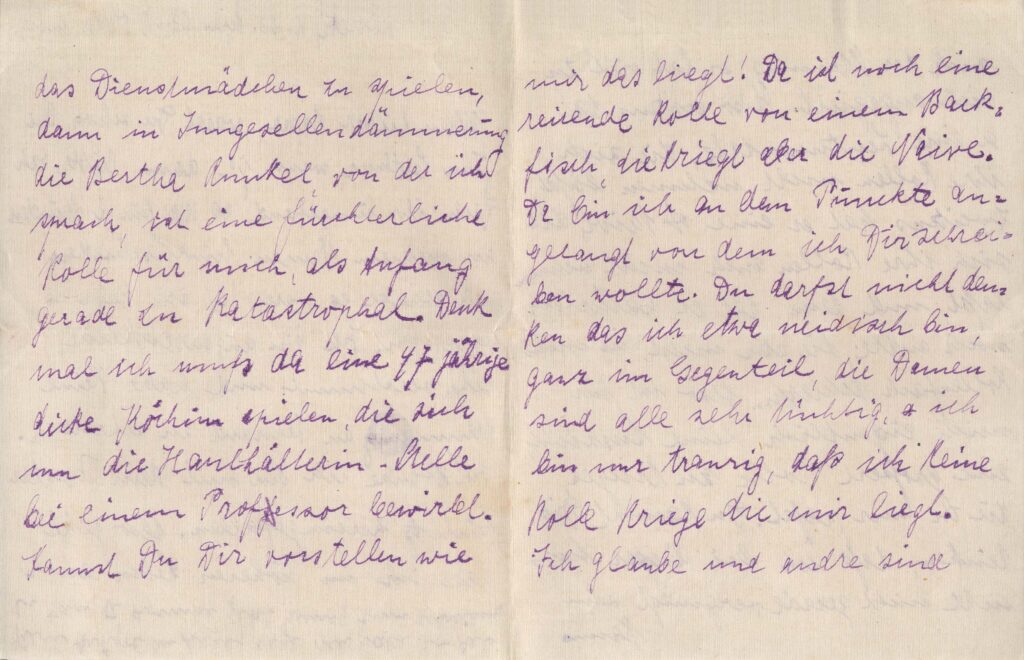 das Dienstmädchen zu spielen,
dann in Junggesellendämmerung
die Bertha Runkel, von der ich
sprach, ist eine fürchterliche
Rolle für mich, als Anfang
gerade zu Katastrophal. Denk
mal ich muß da eine 47 jährige
dicke Köchin spielen, die sich
um die Haushälterin-Stelle
bei einem Professor bewirbt.
Kannst Du Dir vorstellen wie
mir das liegt! Da ist noch eine
reizende Rolle von einem Back-
fisch, die kriegt aber die Naive.
Da bin ich an dem Punkte an-
gelangt von dem ich Dir schrei-
ben wollte. Du darfst nicht den-
ken das ich etwa neidisch bin,
ganz im Gegenteil, die Damen
sind alle sehr tüchtig, ich
bin nur traurig, daß ich keine
Rolle kriege die mir liegt.
Ich glaube und andre sind